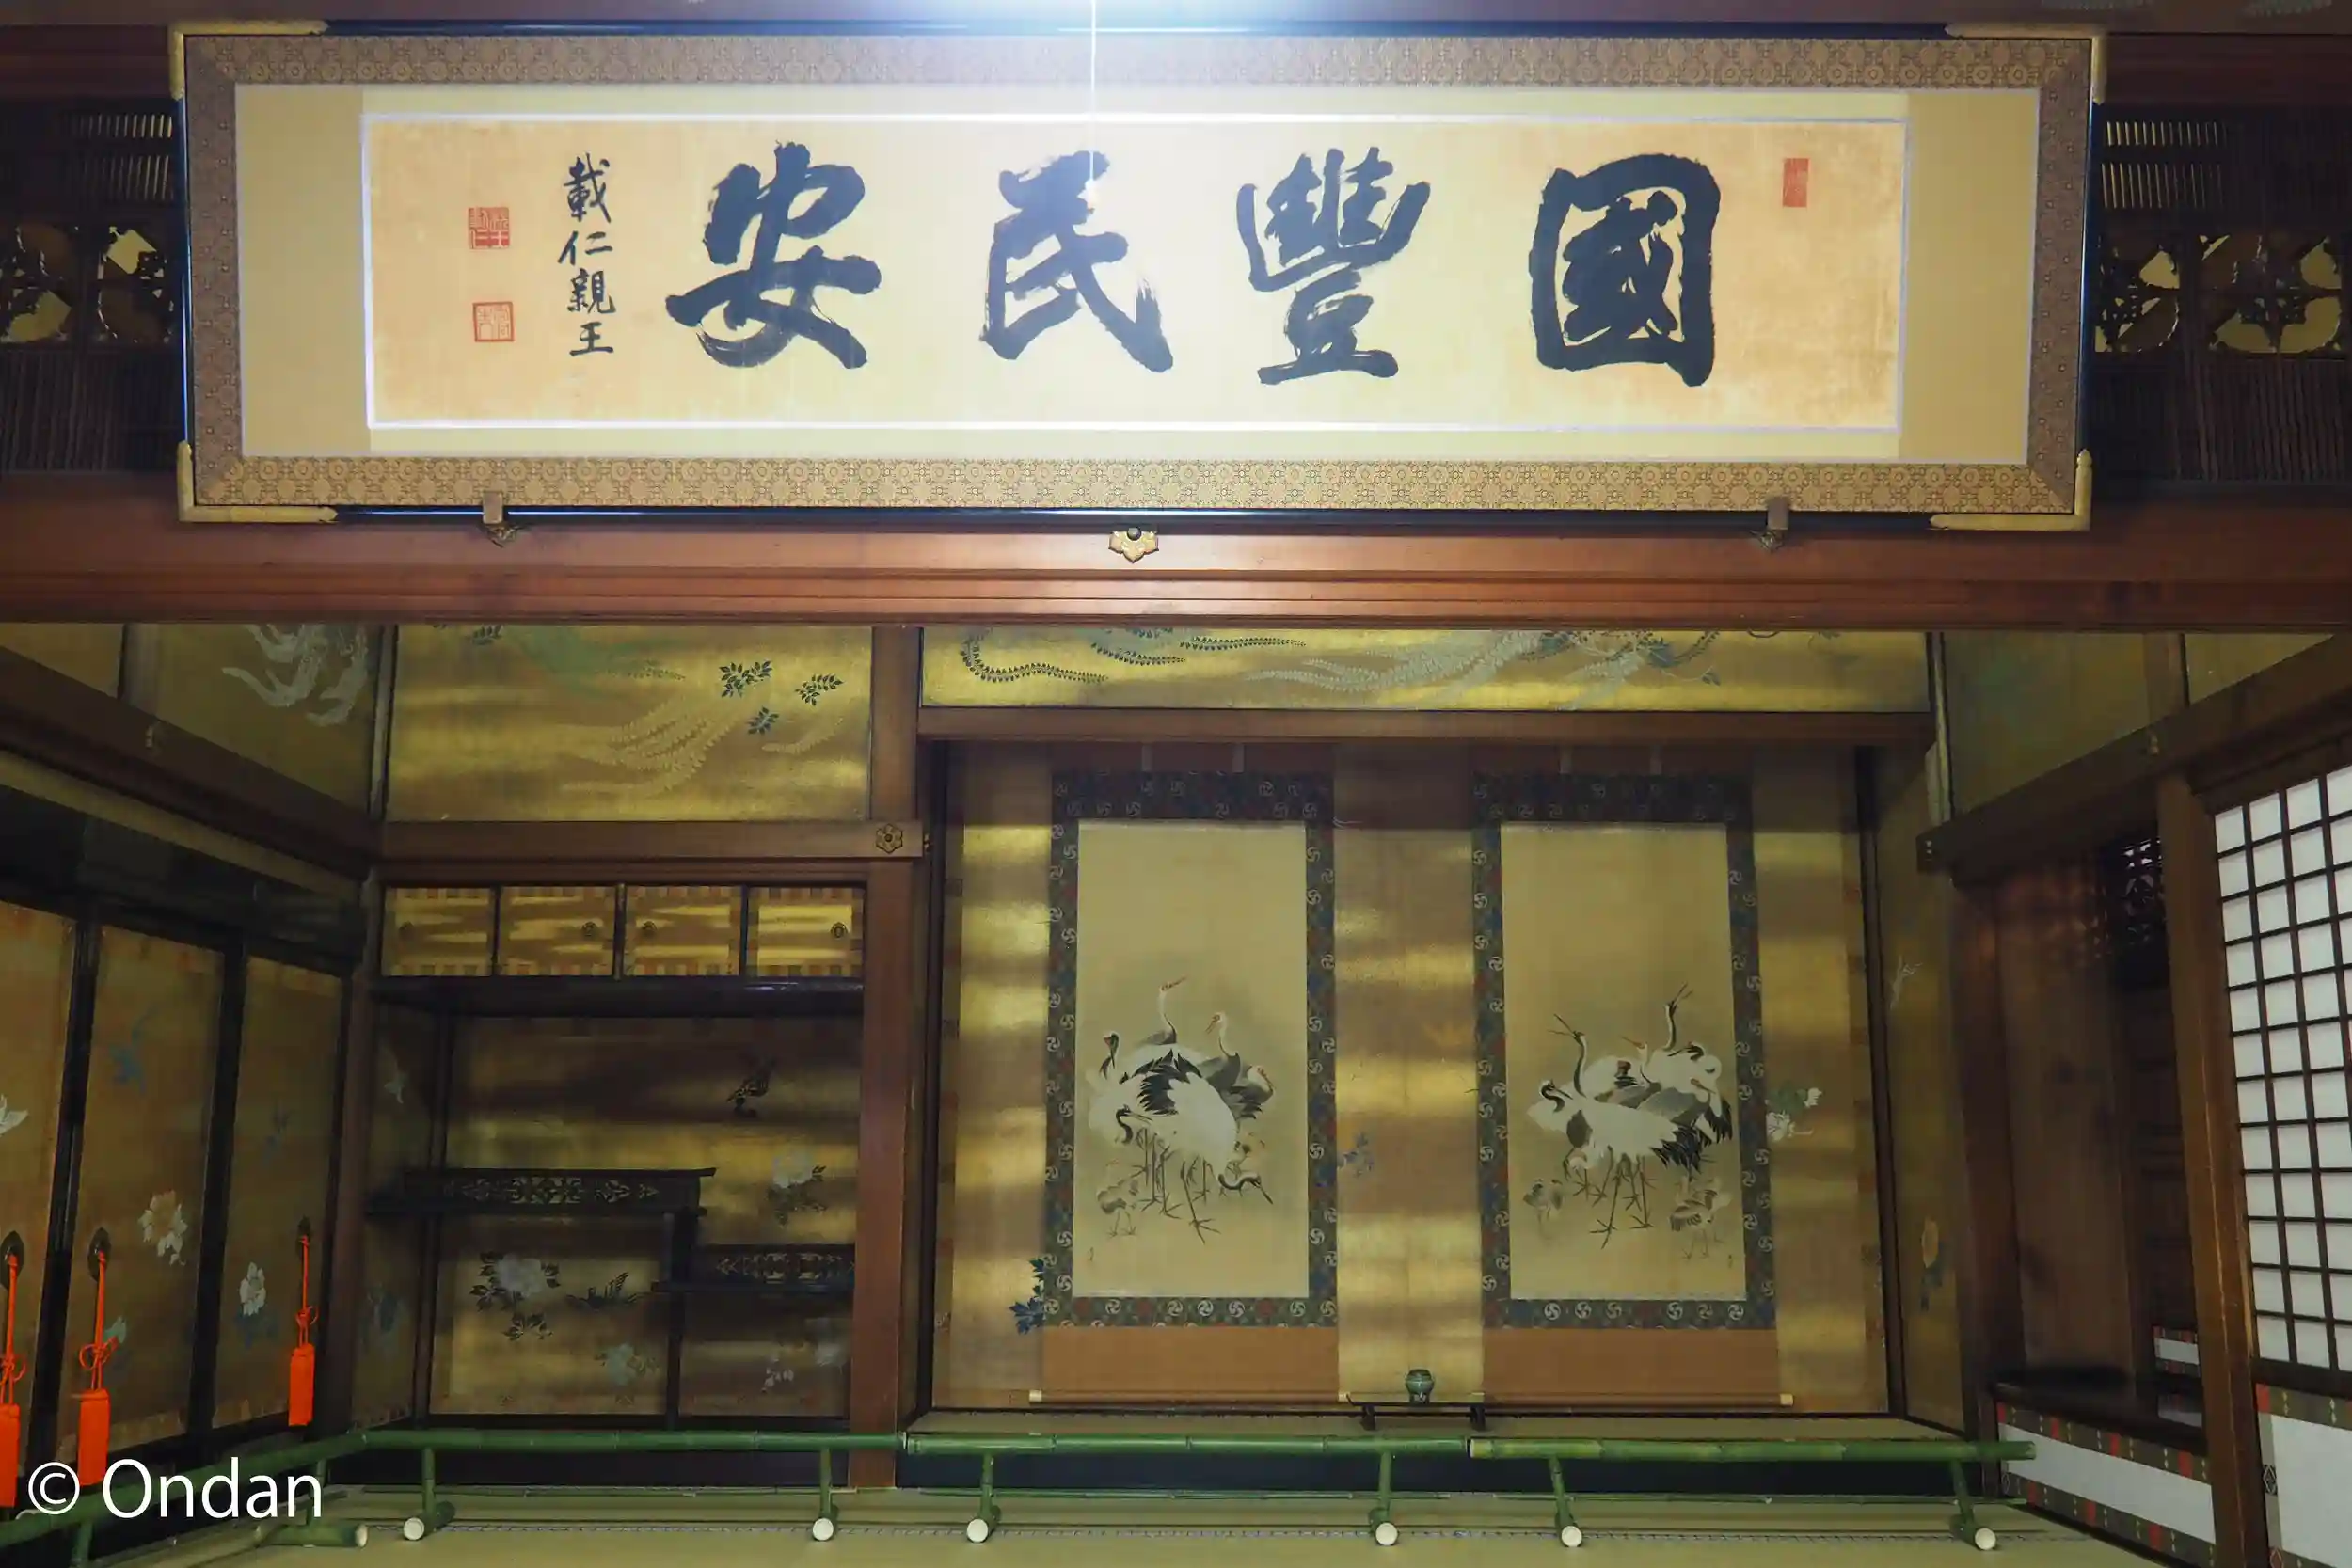 國豐民安
載仁親王
© Ondan